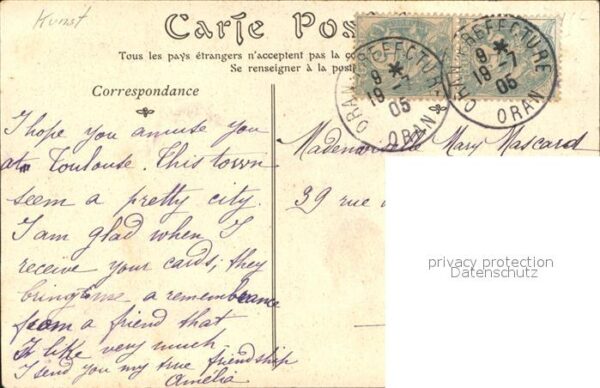 Kunst
Carte Pos
Tous les pays étrangers n'acceptent pas la co
Se renseigner à la post
ORAN PREFECTURE
9 *
19 -7
05
ORAN
ORAN PREFECTURE
9 *
19 -7
05
ORAN
Correspondance
I hope you amuse you
at Toulouse. This town
seem a pretty city.
I am glad when I
receive your cards; they
bring to me a remembrance
from a friend that
I like very much
I send you my true friendship
Amélia
Mademoiselle Mary Mascard
39 rue
privacy protection
Datenschutz